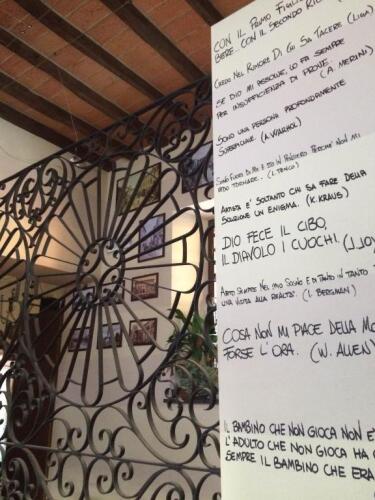 CON IL PRIMO FIGLIO
BERE. CON IL SECONDO
CREDO NEL RUMORE DI CHI SA TACERE (LIGA)
SE DIO MI ASSOLVE, LO FA SEMPRE
PER INSUFFICIENZA DI PROVE. (A. MERINI)
SONO UNA PERSONA PROFONDAMENTE
SUPERFICIALE. (A. WARHOL)
SONO FUORI DI ME E STO IN PENSIERO PERCHÉ NON MI
VEDO TORNARE. (L. TENCO)
ARTISTA E' SOLTANTO CHI SA FARE DELLA
SOLUZIONE UN ENIGMA. (K. KRAUS)
DIO FECE IL CIBO,
IL DIAVOLO I CUOCHI. (J. JOY
ABITO SEMPRE NEL MIO SOGNO E DI TANTO IN TANTO
UNA VISITA ALLA REALTÀ. (I. BERGMAN)
COSA NON MI PIACE DELLA
FORSE L'ORA. (W. ALLEN)
IL BAMBINO CHE NON GIOCA NON E'
L'ADULTO CHE NON GIOCA HA
SEMPRE IL BAMBINO CHE ERA